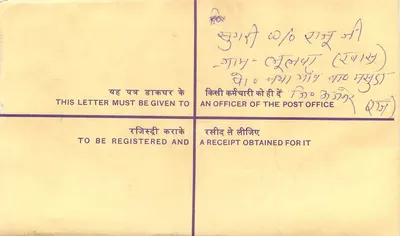 सुगरी w/o रामु जी
ग्राम- लुलवा (खास)
पो० नया गाँव वा० मसुदा
जि० अजमेर
(राज०)
यह पत्र डाकघर के किसी कर्मचारी को ही दें
THIS LETTER MUST BE GIVEN TO AN OFFICER OF THE POST OFFICE
रजिस्ट्री कराके रसीद ले लीजिए
TO BE REGISTERED AND A RECEIPT OBTAINED FOR IT